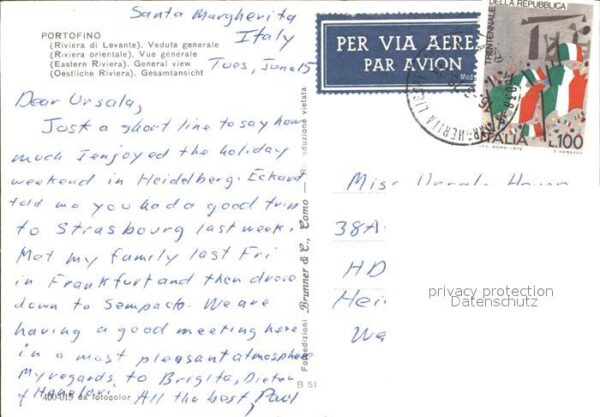 Santa Margherita
Italy
Tues, June 15
PORTOFINO
(Riviera di Levante). Veduta generale
(Riviera orientale). Vue générale
(Eastern Riviera). General view
(Oestliche Riviera). Gesamtansicht
Dear Ursala,
Just a short line to say how
much I enjoyed the holiday
weekend in Heidelberg. Eckard
told me you had a good trip
to Strasbourg last week.
Met my family last Fri
in Frankfurt and then drove
down to Sempach. We are
having a good meeting here
in a most pleasant atmosphere
My regards to Brigita, Dieter
& Hannelori. All the best, Paul
400-015 da fotocolor
Fotoedizioni Brunner & C., Como — Riproduzione vietata
B 51
PER VIA AEREA
PAR AVION
TRENTENNALE DELLA REPUBBLICA
ITALIA L.100
Miss
38A
HD
privacy protection
Datenschutz